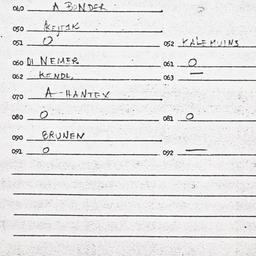 010 A BONDER
050
051 O 052
060 DI NEMER 061 O
062 KENDL 063 —
070 A-HANTEX
080 O 081 O
090 BRUNEN
091 O 092 —